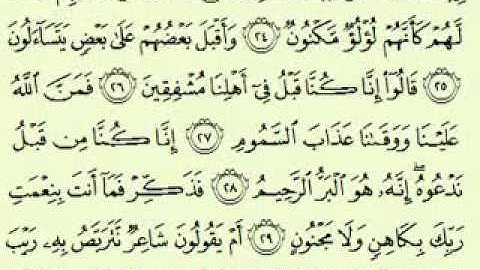 لَّهُمْ كَأَنَّهُمْ لُؤْلُؤٌ مَّكْنُونٌ ﴿٢٤﴾ وَأَقْبَلَ بَعْضُهُمْ عَلَىٰ بَعْضٍ يَتَسَآءَلُونَ
﴿٢٥﴾ قَالُوٓا۟ إِنَّا كُنَّا قَبْلُ فِىٓ أَهْلِنَا مُشْفِقِينَ ﴿٢٦﴾ فَمَنَّ ٱللَّهُ
عَلَيْنَا وَوَقَىٰنَا عَذَابَ ٱلسَّمُومِ ﴿٢٧﴾ إِنَّا كُنَّا مِن قَبْلُ
نَدْعُوهُ ۖ إِنَّهُۥ هُوَ ٱلْبَرُّ ٱلرَّحِيمُ ﴿٢٨﴾ فَذَكِّرْ فَمَآ أَنتَ بِنِعْمَتِ
رَبِّكَ بِكَاهِنٍ وَلَا مَجْنُونٍ ﴿٢٩﴾ أَمْ يَقُولُونَ شَاعِرٌ نَّتَرَبَّصُ بِهِۦ رَيْبَ